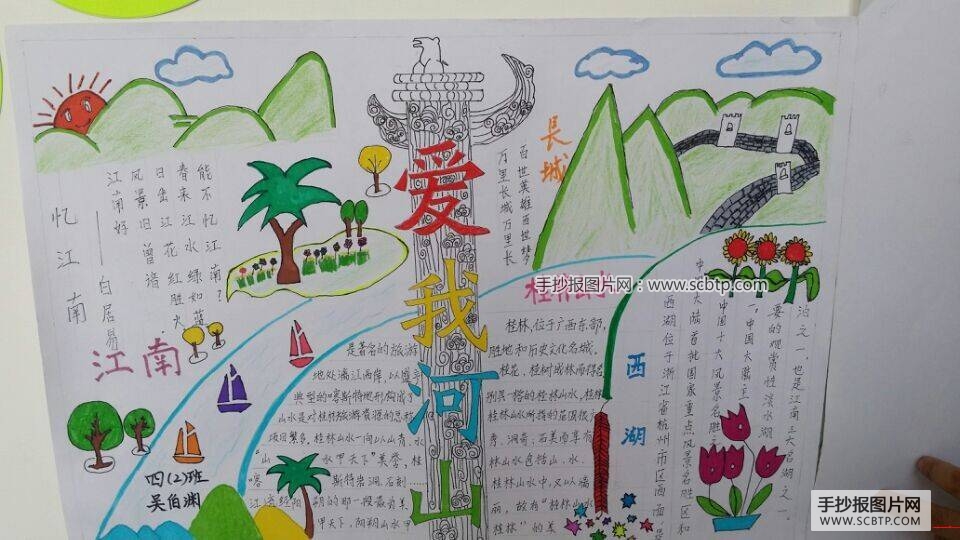 爱我河山
忆江南
——白居易
江南好
风景旧曾谙
日出江花红胜火
春来江水绿如蓝
能不忆江南？
江南
四（2）班
吴伯渊
長城
百世英雄百世梦
万里长城万里长
桂林山水
桂林，位于广西东部，
是著名的旅游
胜地和历史文化名城。
地处漓江西岸，以盛产
桂花、桂树成林而得名
典型的喀斯特地形构成了
别具一格的桂林山水，桂林
山水是对桂林旅游资源的总称
项目繁多，桂林山水一向以山青、水
秀、洞奇、石美而享有
“山水甲天下”美誉，桂
林山水包括山、水、
喀斯特岩洞、石刻
桂林山水中，又以福
丽，故有“桂林山水
甲天下，阳朔山水甲
桂林”的美
西湖
西湖位于浙江省杭州市区西面，是
大陆首批国家重点风景名胜区和
中国十大风景名胜之
一。中国大陆主
要的观赏性淡水湖
泊之一，也是江南三大名湖之一。
手抄报图片网：www.scbtp.com
手抄报图片网
WWW.SCBTP.COM